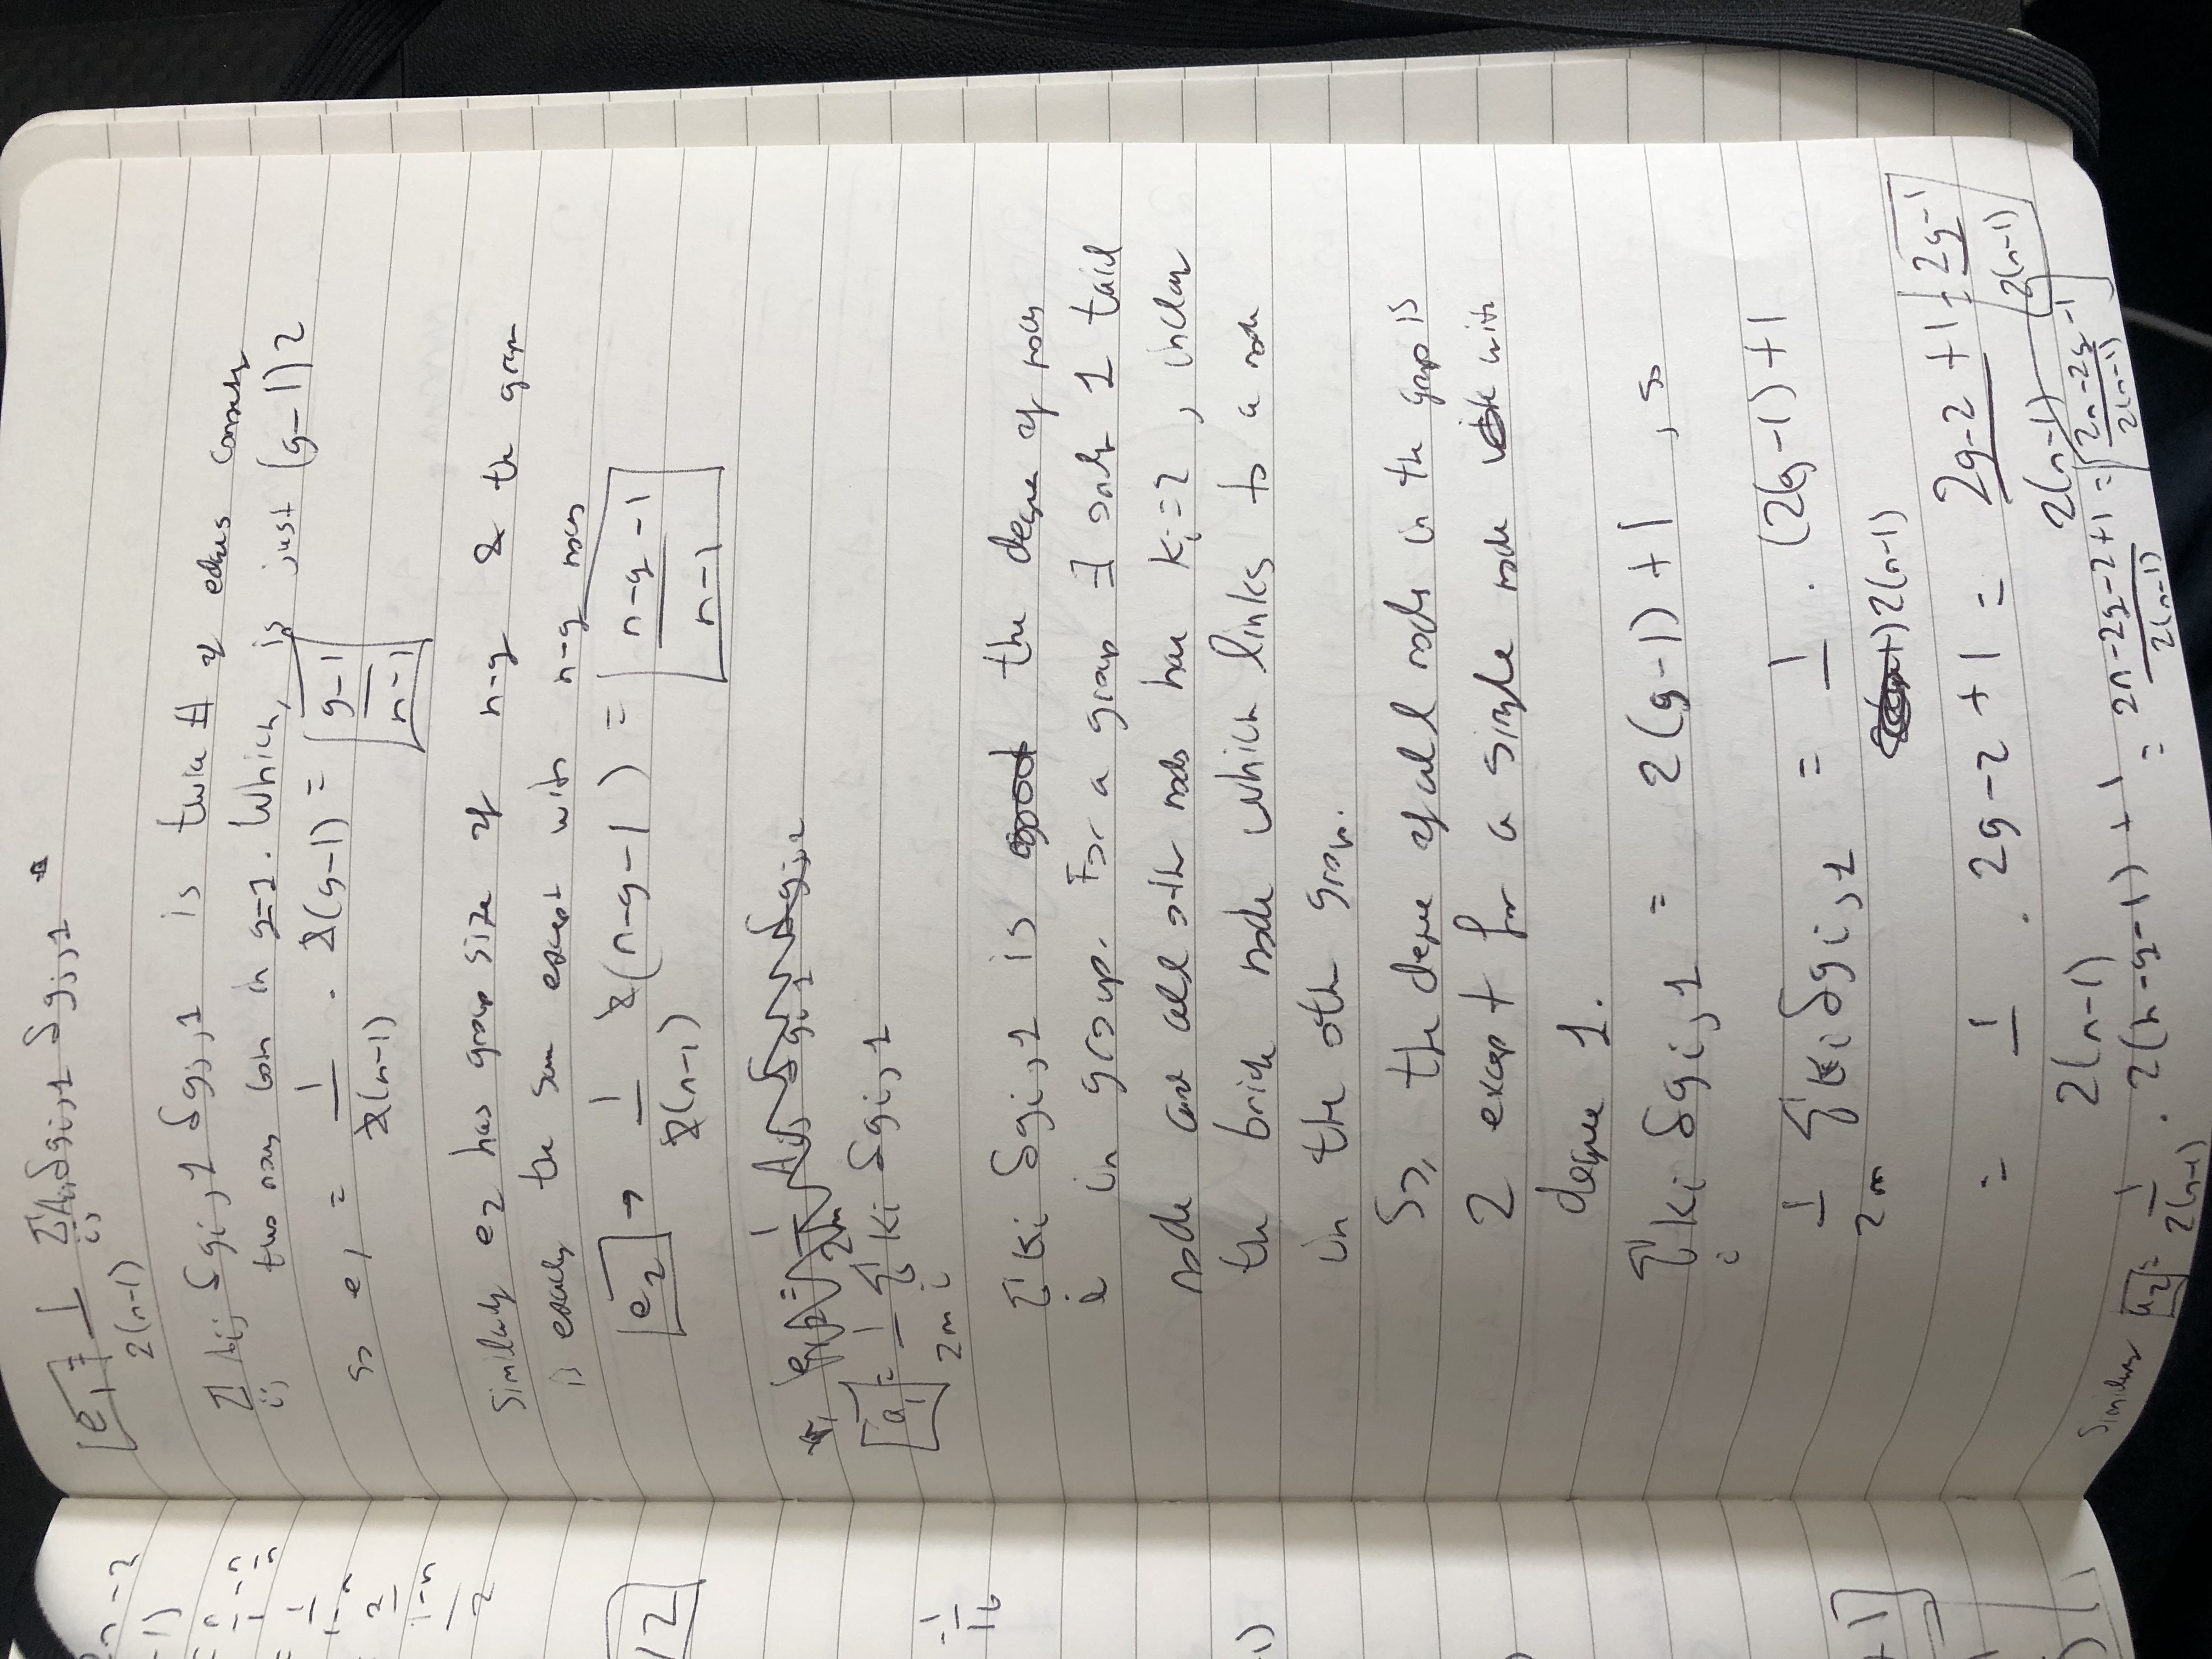 e₁ = 1/2(n-1) Σij Aij δgi,1 δgj,1
Σij Aij δgi,1 δgj,1 is twice # of edges connecting
two nodes both in g=1. Which, is just (g-1)2
so e₁ = 1/2(n-1) · 2(g-1) = g-1/n-1
Similarly e₂ has group size of n-g & the graph
is exactly the same except with n-g nodes
e₂ → 1/2(n-1) 2(n-g-1) = n-g-1/n-1
a₁ = 1/2m Σi ki δgi,1
Σ ki δgi,1 is the degree of nodes
i in group. For a group ∃ only 1 tail
node and all other nodes have ki=2, includ
the bridge node which links to a node
in the other group.
So, the degree of all nodes in the group is
2 except for a single node with
degree 1.
Σi ki δgi,1 = 2(g-1)+1, so
1/2m Σ ki δgi,1 = 1/2(n-1) · (2(g-1)+1
= 1/2(n-1) · 2g-2+1 = 2g-2+1/2(n-1) = 2g-1/2(n-1)
Similarly a₂ = 1/2(n-1) · 2(n-g-1)+1 = 2n-2g-2+1/2(n-1) = 2n-2g-1/2(n-1)
-2
12
-1/16
+1